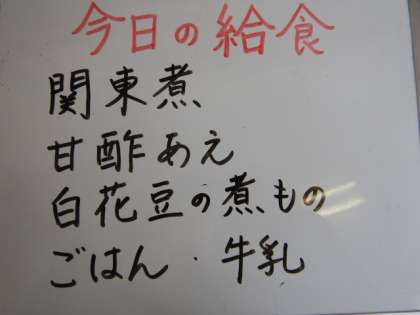 今日の給食
関東煮
甘酢あえ
白花豆の煮もの
ごはん・牛乳